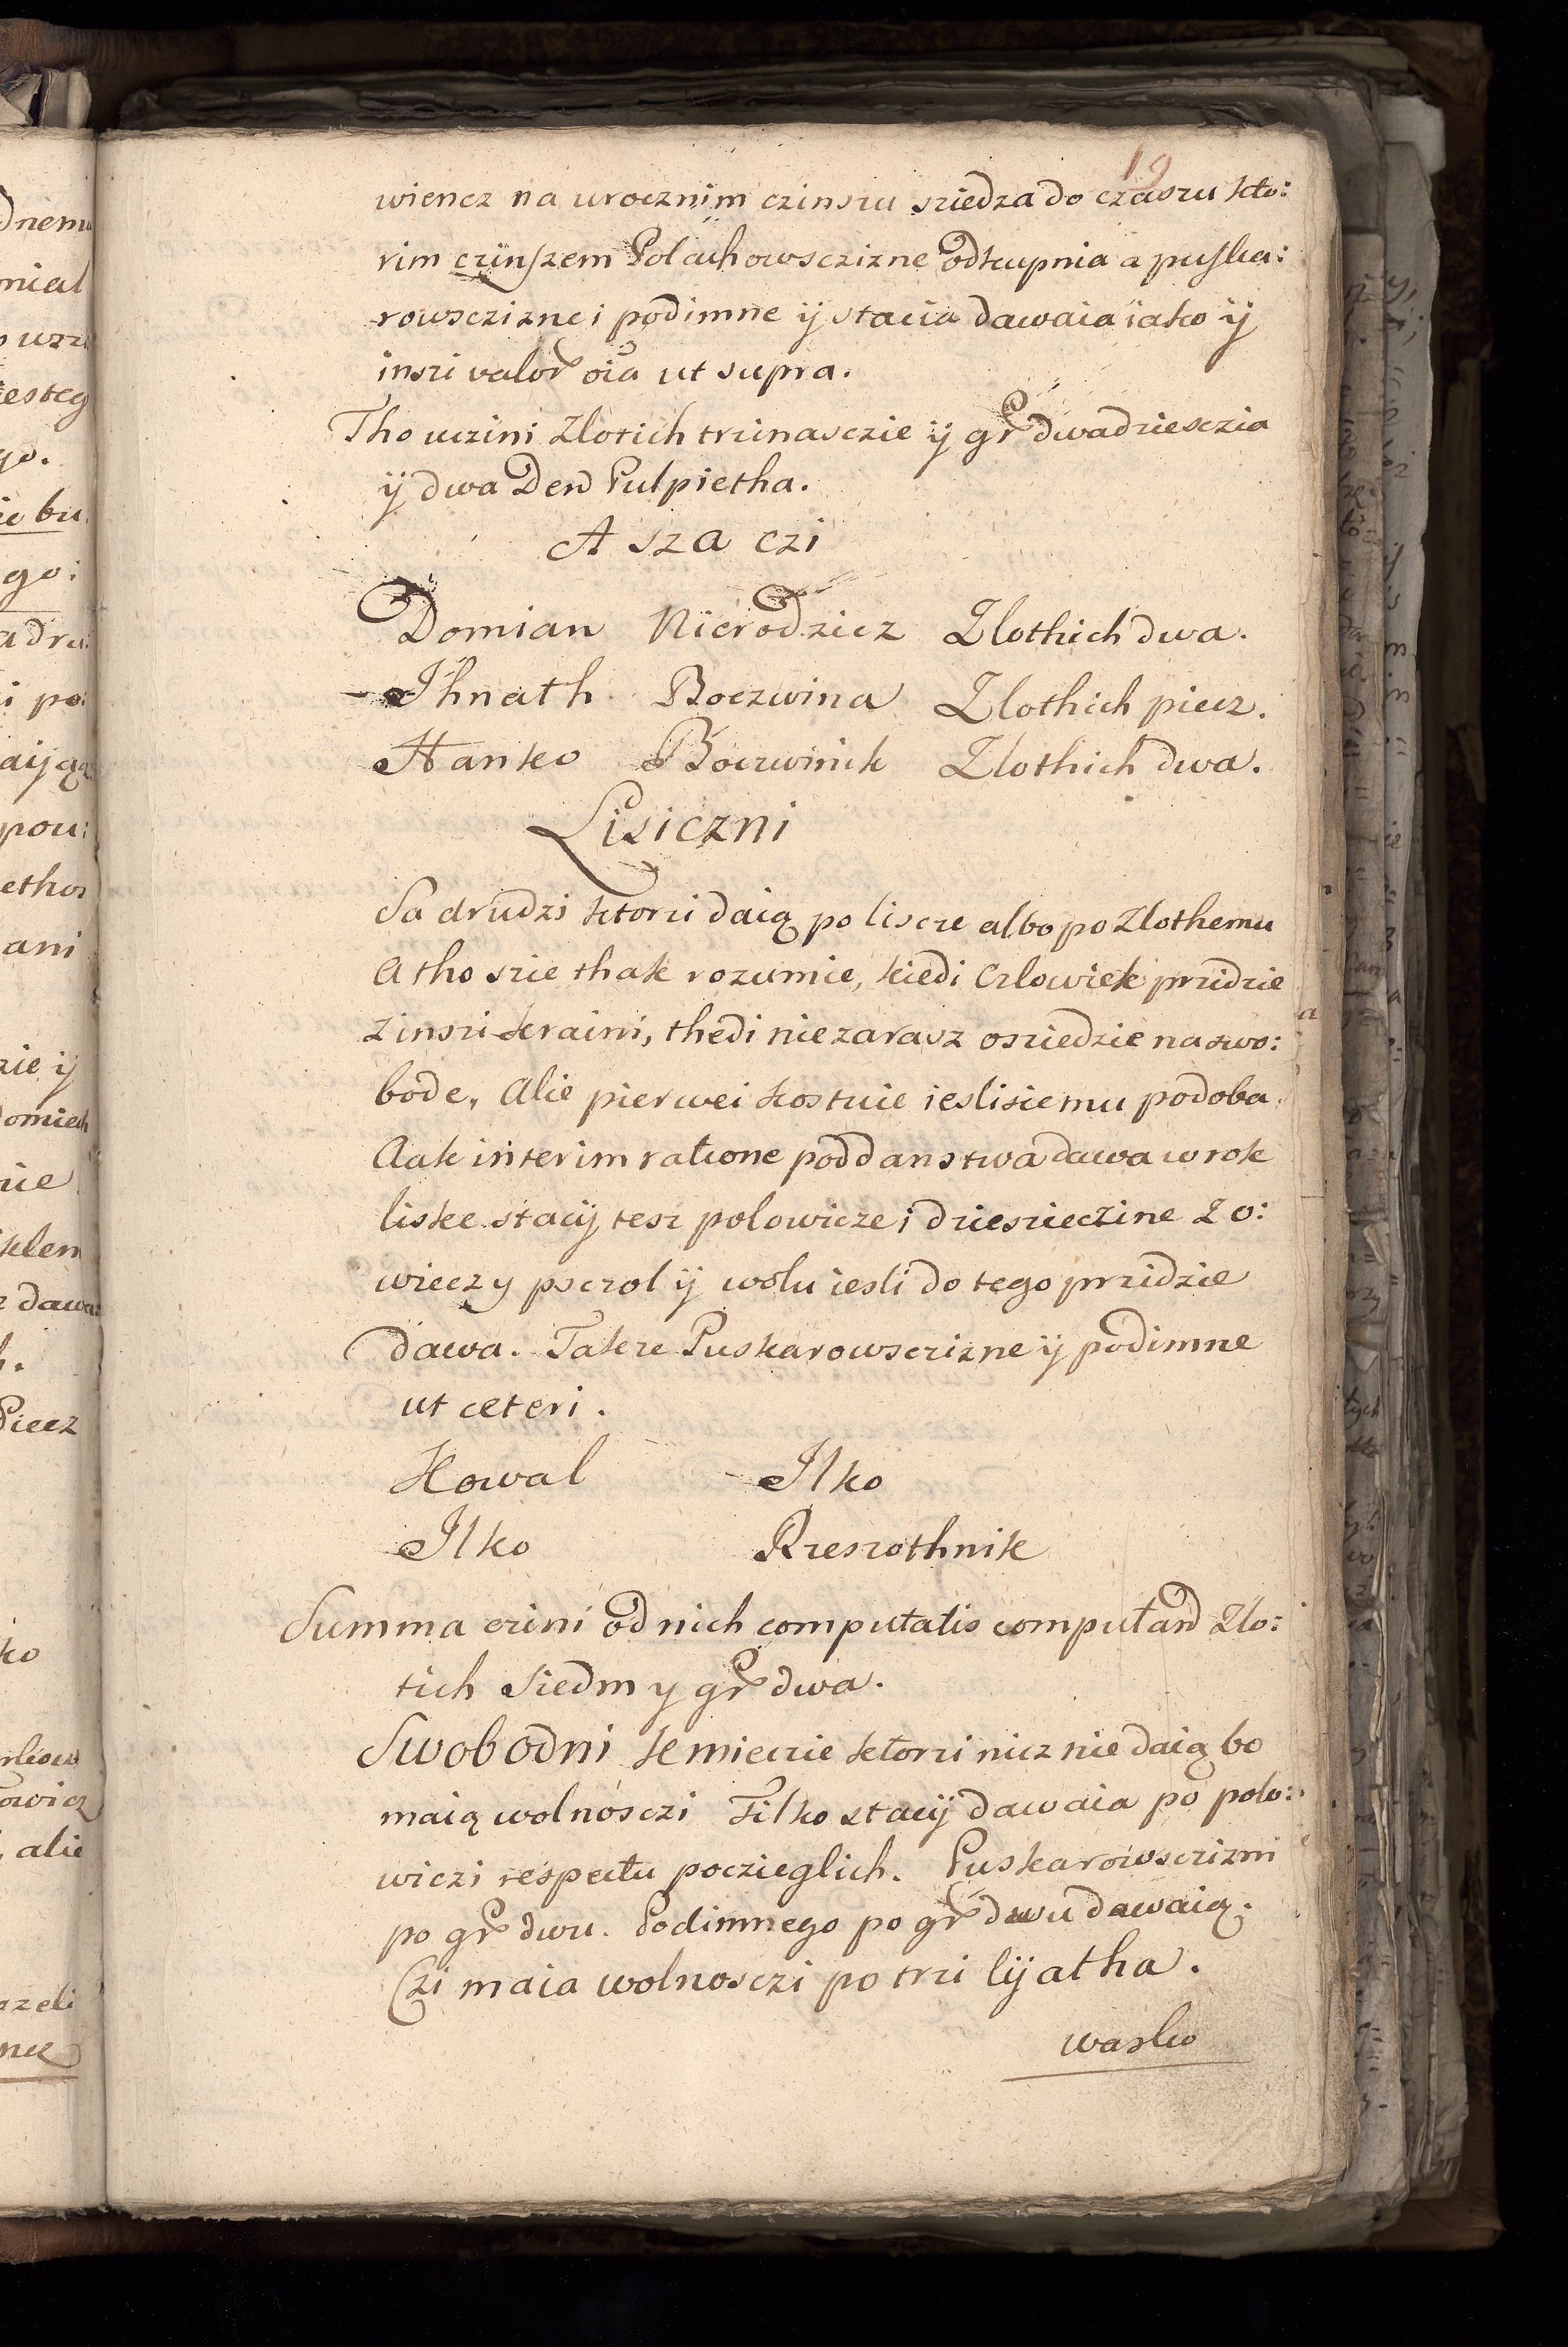 19
wiencz na urocznim czinsiu sziedza do czaszu kto:
rim czijnszem Polachowsczizne odkupnia a puska:
rowsczizne i podimne ij stacia dawaia iako ij
inszi valor oia ut supra.
Tho uczini Zlotich trzinasczie ij gr dwadziesczia
ij dwa Den Pulpietha.
A sza czi
Domian Nierodzicz Zlothich dwa.
Ihnath Boczwina Zlothich piecz.
Hanko Boczwinik Zlothich dwa.
Lisiczni
Sa drudzi ktorzi daią po liscze albo po Zlothemu
A tho szie thak rozumie, kiedi Czlowiek przidzie
z inszi kraini, thedi nie zarasz osziedzie na swo:
bode, Alie pierwei kostuie iesli sie mu podoba.
Aak interim ratione poddanstwa dawa w rok
liske stacij tesz polowicze i dzieszieczine z o:
wieczy psczol ij wolu iesli do tego przidzie
dawa. Takze Puskarowsczizne ij podimne
ut ceteri.
Kowal Ilko
Ilko Rzeszothnik
Summa czini od nich computatis computand Zlo:
tich Siedm y gr dwa.
Swobodni kmieczie ktorzi nicz nie daią bo
maią wolnosczi Tilko stacij dawaia po polo:
wiczi respectu poczieglich. Puskarowsczizni
po gr dwu. Podimnego po gr dwu dawaią.
Czi maia wolnosczi po trzi lijatha.
wasko